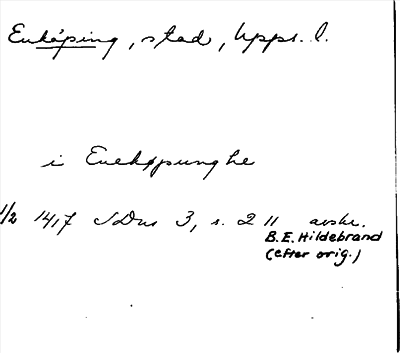 Enköping, stad, Upps. l.
i Enekøpunghe
1/2 1417 SDns 3, s. 211 avskr.
B.E. Hildebrand
(efter orig.)